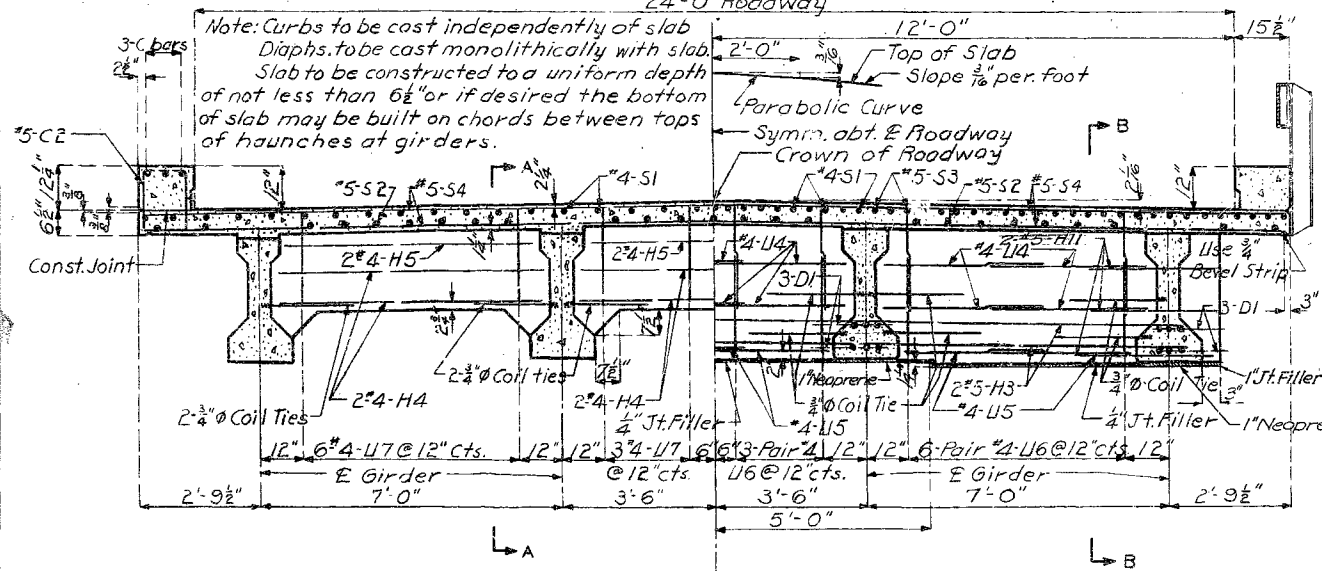 24'-0" Roadway
Note: Curbs to be cast independently of slab
Diaphs. to be cast monolithically with slab.
Slab to be constructed to a uniform depth
of not less than 6½" or if desired the bottom
of slab may be built on chords between tops
of haunches at girders.
3-C bars
2½"
#5-C2
12'-0"
15½"
2'-0"
3/16"
Top of Slab
Slope 3/16" per. foot
Parabolic Curve
Symm. abt. ℄ Roadway
Crown of Roadway
A
B
12"
#5-S2
#5-S4
2¼"
#4-S1
#4-S1
#5-S3
#5-S2
#5-S4
2 1/16"
12"
6½"
12¼"
Const. Joint
2#4-H5
2-#4-H5
#4-U4
3-D1
#4-U4
2-#5-H11
Use ¾"
Bevel Strip
3-D1
3"
2-¾"φ Coil Ties
2#4-H4
2-¾"φ Coil ties
7½"
7½"
2#4-H4
¼" Jt. Filler
1" Neoprene
¾"φ Coil Tie
#4-U5
2#5-H3
#4-U5
¾"φ Coil Tie
¼" Jt. Filler
1" Jt. Filler
3"
1" Neopre
12"
6#4-U7 @ 12" Cts.
12"
12"
3#4-U7
@ 12" cts.
6"
6"
3-Pair #4
U6 @ 12" cts.
12"
12"
6-Pair #4-U6 @ 12" cts.
12"
℄ Girder
℄ Girder
2'-9½"
7'-0"
3'-6"
3'-6"
7'-0"
2'-9½"
5'-0"
A
B